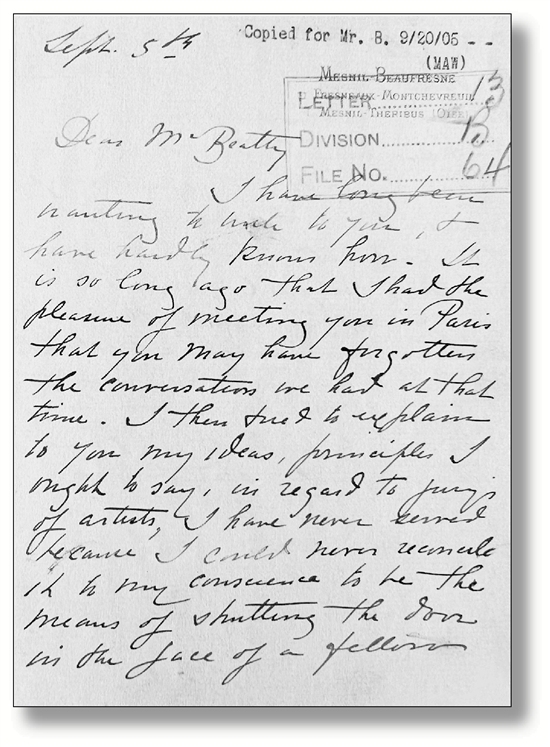 Sept. 5th
Copied for Mr. B. 9/20/05 - -
(MAW)
MESNIL-BEAUFRESNE
FRESNEAUX-MONTCHEVREUIL
MESNIL-THERIBUS (OISE)
LETTER 13
DIVISION B
FILE NO. 64
Dear Mr Beatty
I have long been
wanting to write to you, &
have hardly known how. It
is so long ago that I had the
pleasure of meeting you in Paris
that you may have forgotten
the conversation we had at that
time. I then tried to explain
to you my ideas, principles I
ought to say, in regard to jurys
of artists, I have never served
because I could never reconcile
it to my conscience to be the
means of shutting the door
in the face of a fellow